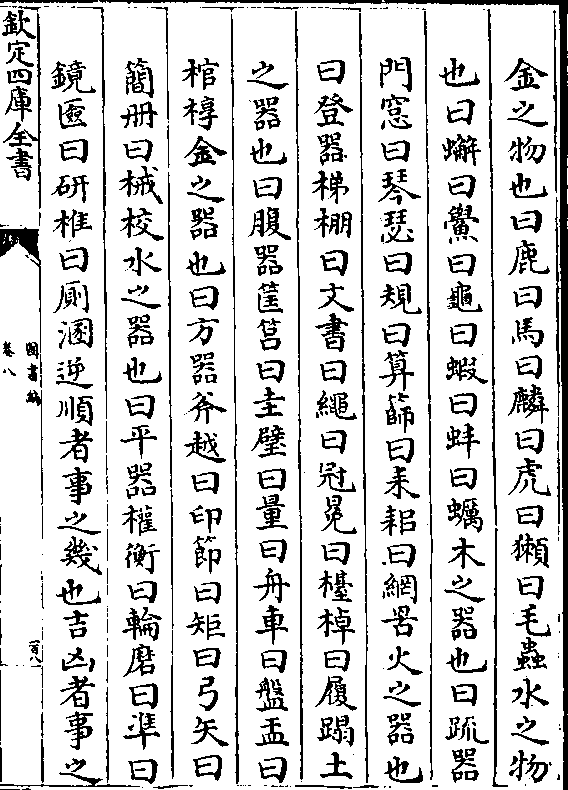 金之物也曰鹿曰馬曰麟曰虎曰獺曰毛蟲水之物
也曰蠏曰鱟曰龜曰蝦曰蚌曰蠣木之器也曰疏器
門窓曰琴瑟曰規曰算篩曰耒耜曰網罟火之器也
曰登器梯棚曰文書曰繩曰冠冕曰檯棹曰履蹋土
之器也曰腹器筐筥曰圭璧曰量曰舟車曰盤盂曰
棺椁金之器也曰方器斧越曰印節曰矩曰弓矢曰
簡冊曰械校水之器也曰平器權衡曰輪磨曰準曰
鏡匳曰研椎曰厠溷逆順者事之幾也吉凶者事之
欽定四庫全書
圖書編
卷八
一百八